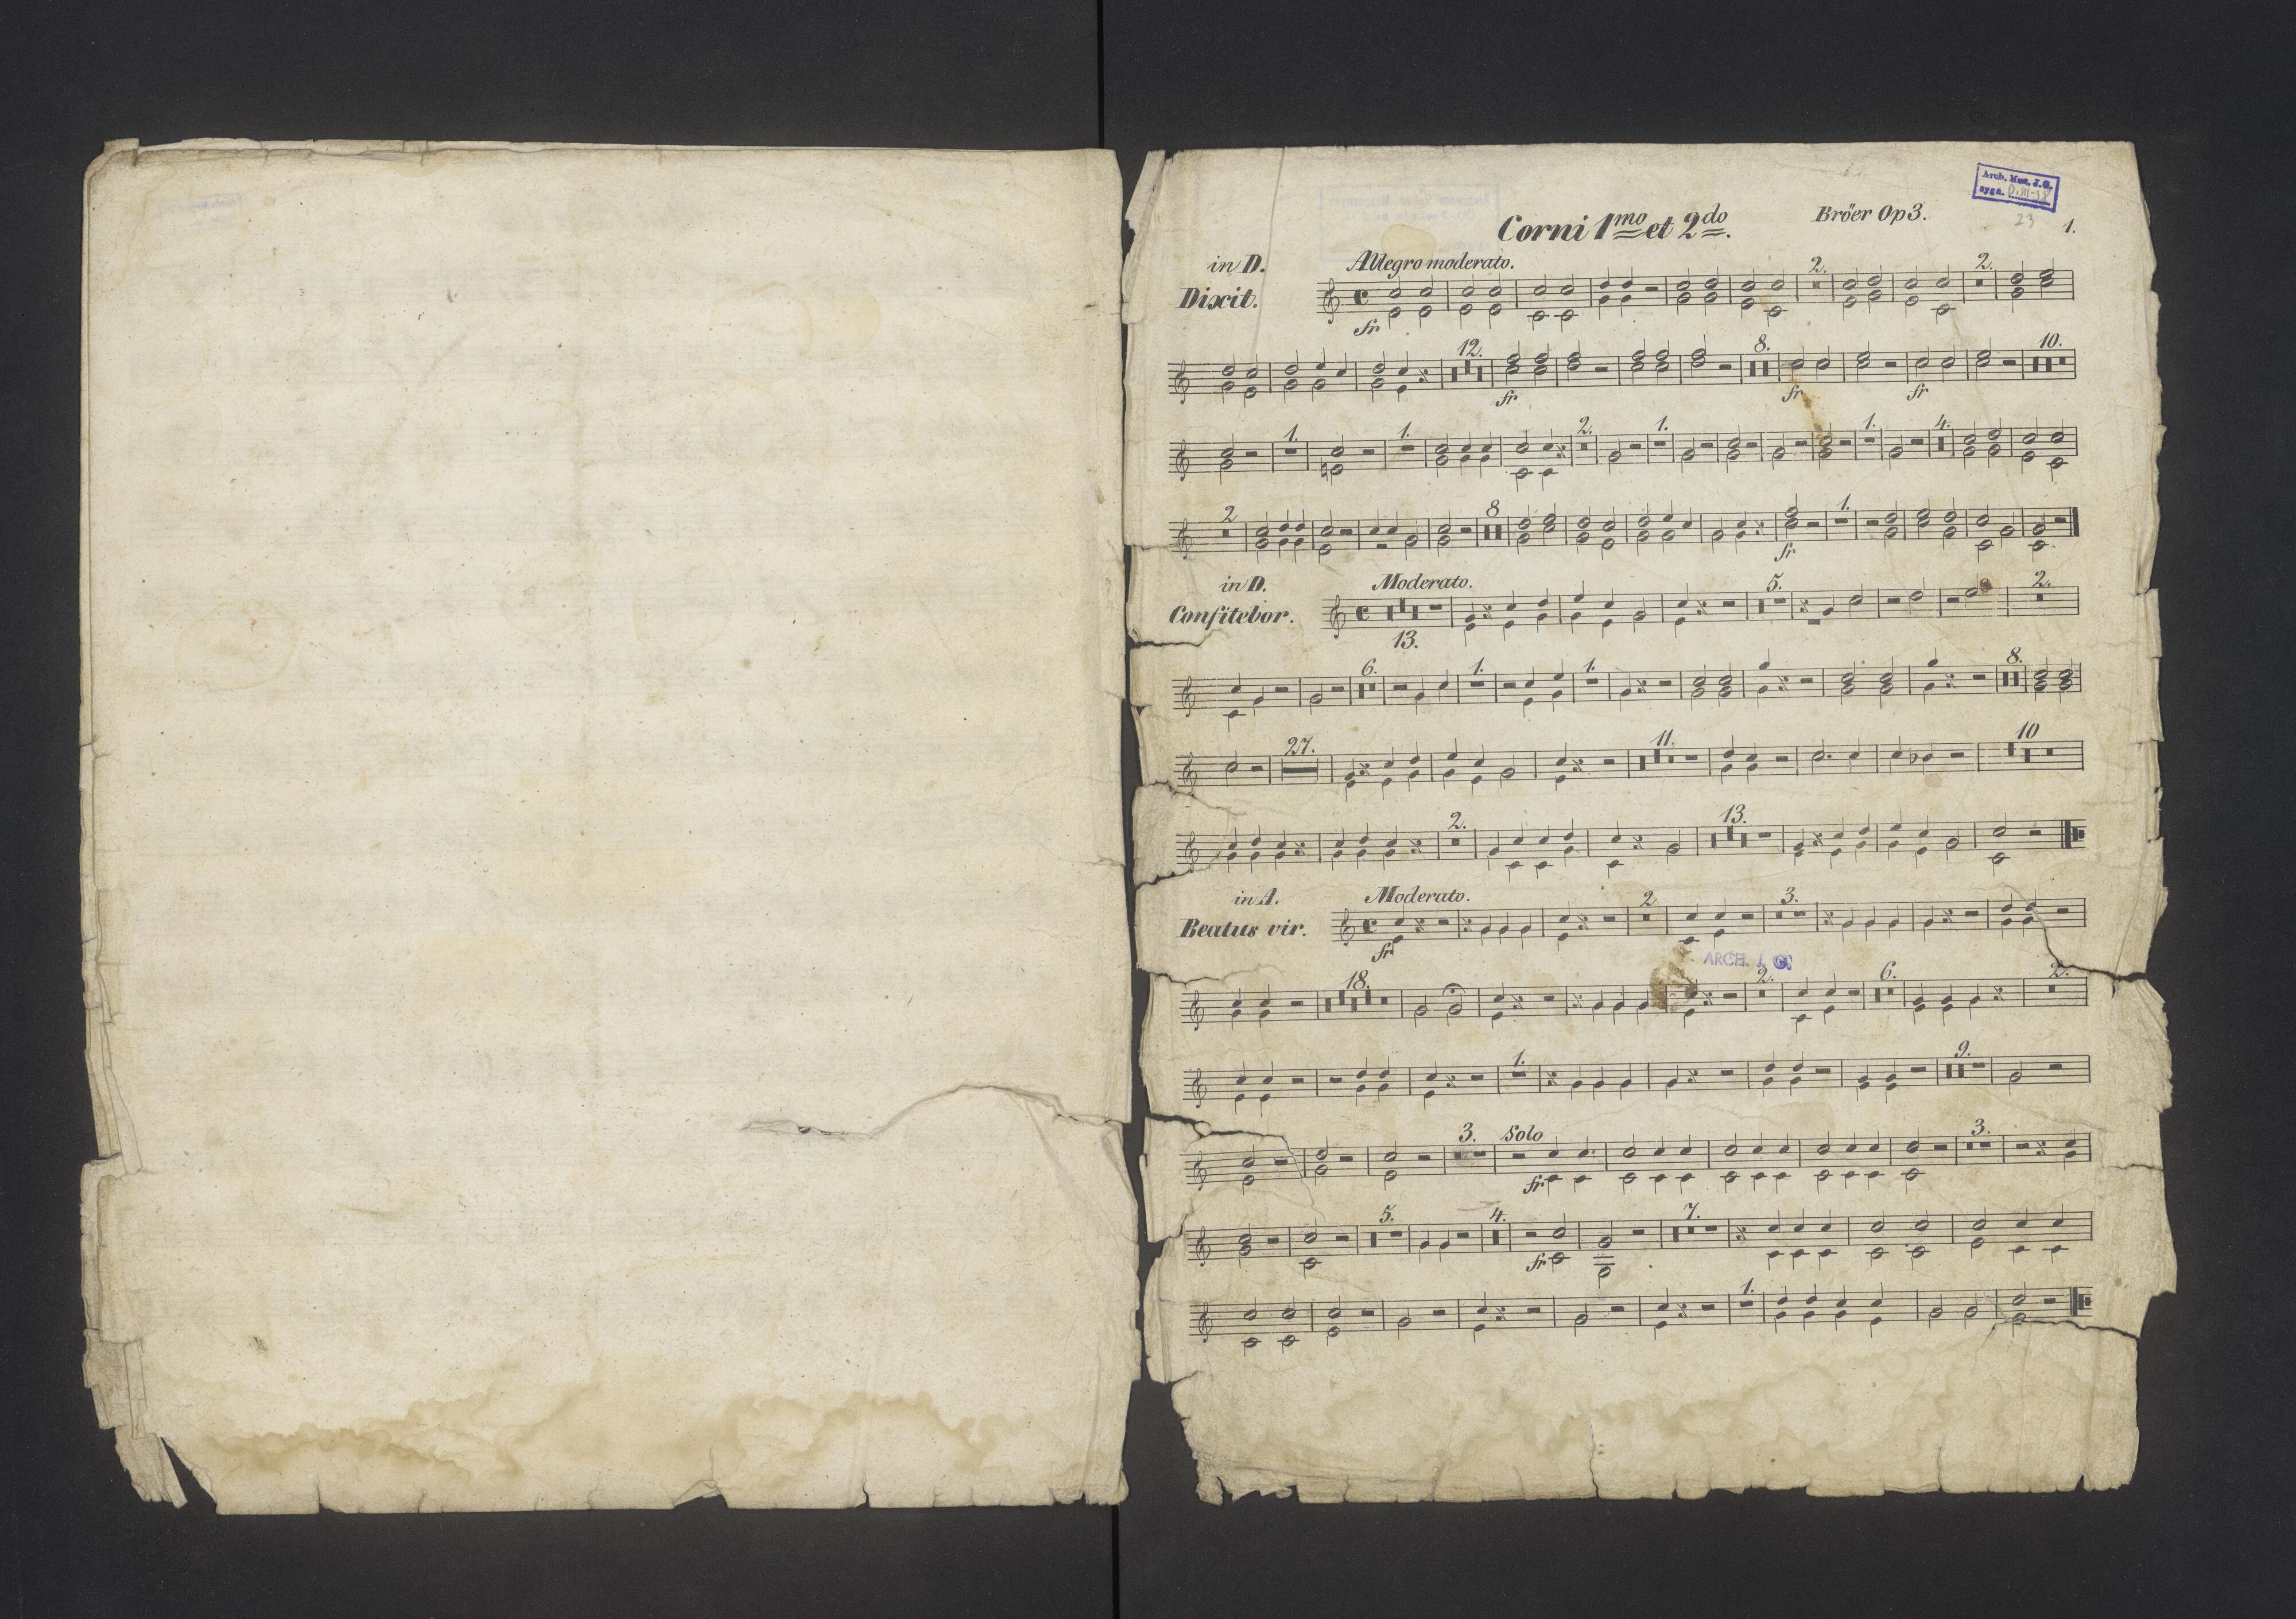 Arch. Mus. J.G.
sygn. D.III-38
23
Corni 1mo et 2do.
Bröer Op 3.
1.
in D.
Allegro moderato.
Dixit.
2. 2.
fr
12. 8. 10.
fr fr fr
1. 1. 2. 1. 1. 4.
2 8 1.
fr
in D.
Moderato.
Confitebor.
5. 2.
13.
6. 1. 1. 8.
27. 11. 10
2. 13.
in A.
Moderato.
Beatus vir.
2 3.
fr
ARCH. J. G.
18. 2. 6. 2.
1. 9.
3. Solo 3.
fr
5. 4. 7.
fr
1.